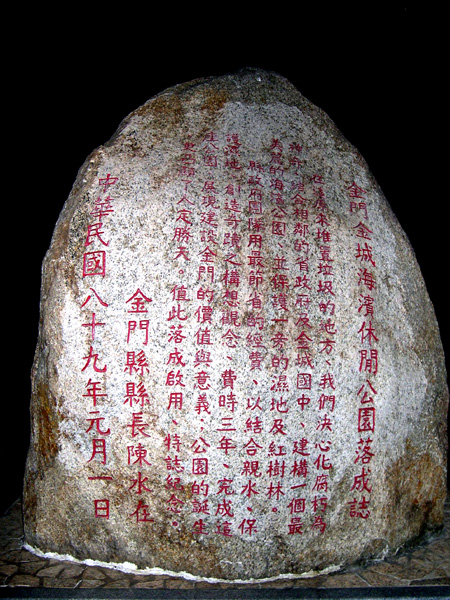 金門金城海濱休閒公園落成誌
堆置垃圾的地方、我們決心化腐朽為
結合相鄰的省政府及金城國中、建構一個最
美麗的海濱公園、並保護一旁的濕地及紅樹林。
縣政府團隊用最節省的經費、以結合親水、保
護濕地、創造奇蹟之構想觀念、費時三年、完成這
座公園、展現建設金門的價值與意義、公園的誕生
人定勝天。值此落成啟用、特誌紀念。
金門縣縣長陳水在
中華民國八十九年元月一日